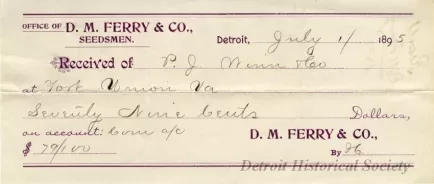 OFFICE OF D. M. FERRY & CO.,
SEEDSMEN.
Detroit, July 1/ 1895
Received of P. J. Winn & Co
at Fork Union Va
Seventy Nine Cents Dollars,
on account: Corn a/c
$ 79/100
D. M. FERRY & CO.,
By
Detroit Historical Society